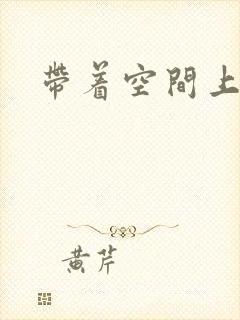 帶着空間上
黄芹